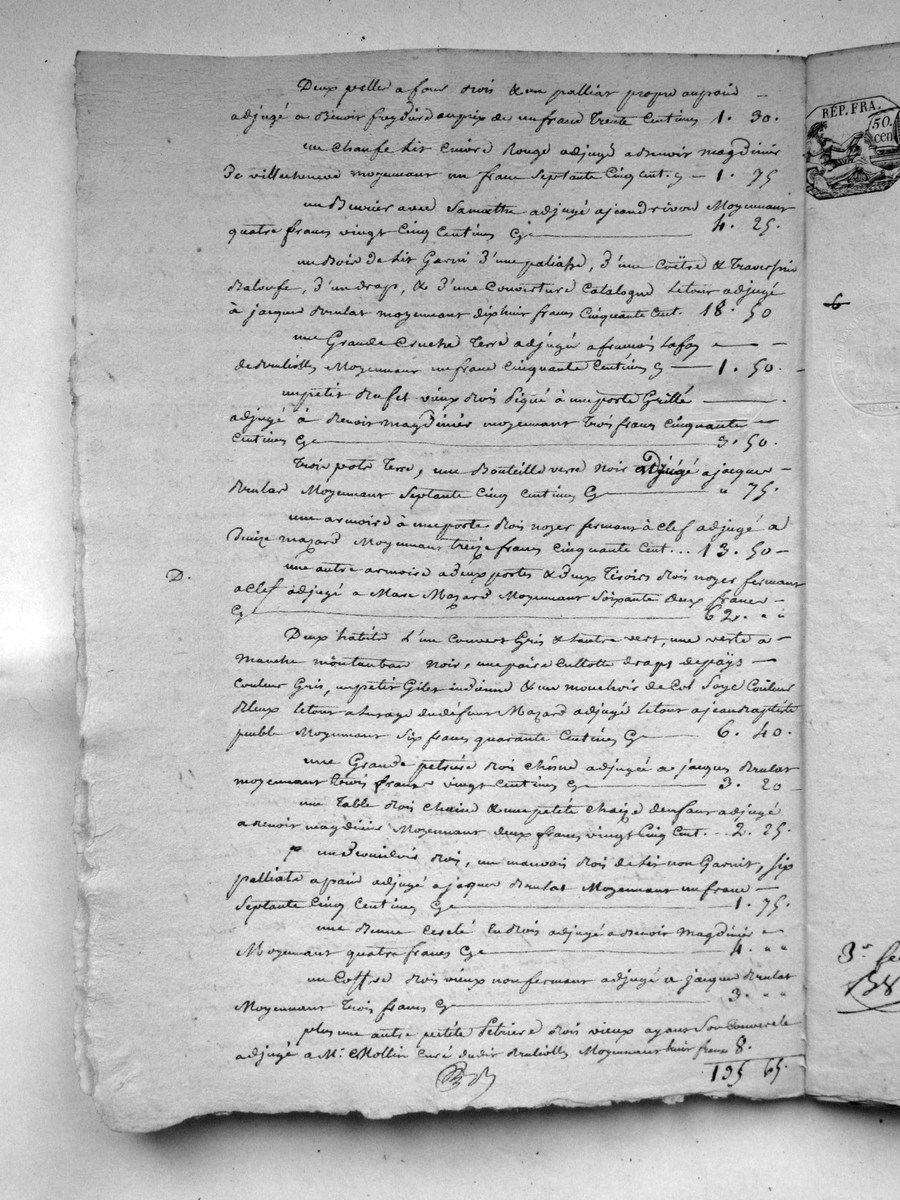 Deux pelle a four Bois & un palliat propre au pain —
adjugé a Benoit freydière au prix de un franc Trente Centimes 1. 30.
une Chaufe Lit Cuivre Rouge adjugé a Benoit Magdinier
De villecheneve moyennant un franc Septante Cinq Cent. cy — 1. 75
un Beurier avec Samattre adjugé a jean drivon Moyennant
quatre francs vingt Cinq Centimes Cy — 4. 25.
un Bois De Lit Garni d'une paliasse, d'une Coëtre & Traversin
Baloufe, d'un drap, & d'une Couverture Catalogne Letout adjugé
à jacque Brulat moyennant dixhuit francs Cinquante Cent. 18. 50
une Grande Cruche Terre adjugé a francois Lafay
de Brulliolles Moyennant un franc Cinquante Centimes Cy — 1. 50.
un petit Bufet vieux Bois Piqué à une porte Grillé —
adjugé à Benoit magdinier moyennant trois francs cinquante —
Centimes Cy — 3. 50.
Trois pots Terre, une Bouteille verre noir adjugé a jacque —
Brulat Moyennant Septante Cinq Centimes Cy — " 75.
une armoire à une porte Bois noyer fermant à Clef adjugé a
Denize mazard Moyennant treize francs Cinquante Cent... 13. 50 —
D.
une autre armoire a Deux portes & Deux Tiroirs Bois noyer fermant
a Clef adjugé a Marc Mazard Moyennant Soixante deux francs —
Cy — 62. " "
Deux habits L'un Couvert Gris & Lautre vert, une veste a —
Manche montauban Noir, une paire Cullotte draps de païs —
Couleur Gris, un petit Gilet indienne & un mouchoir de Col Soye Couleur
Bleux letout a Lusage dudéfunt Mazard adjugé letout a jean Baptiste
puible Moyennant Six francs quarante Centimes Cy — 6. 40.
une Grande petriere Bois Chêsne adjugée a jacques Brulat
moyennant trois francs vingt Centimes Cy — 3. 20 —
une Table Bois Chaine & une petite Chaize denfant adjugé
a Benoit magdinier Moyennant deux francs vingt Cinq Cent. .. 2. 25.
un Bois, un mauvais Bois de Lit non Garnit, Six
palliats a pain adjugé a jacque Brulat Moyennant un franc —
Septante Cinq Centimes Cy — 1. 75.
une Benne Cerclé En Bois adjugé a Benoit Magdinier —
Moyennant quatre francs Cy — 4. " "
un Coffre Bois vieux non fermant adjugé a jacque Brulat
Moyennant Trois francs Cy — 3. " "
plus une autre petite Petriere Bois vieux ayant Son Couvercle
adjugé a Mr. Mollin Curé dudit Brulliolles Moyennant huit francs 8.
135 65.
RÉP. FRA.
50.
cen
3e